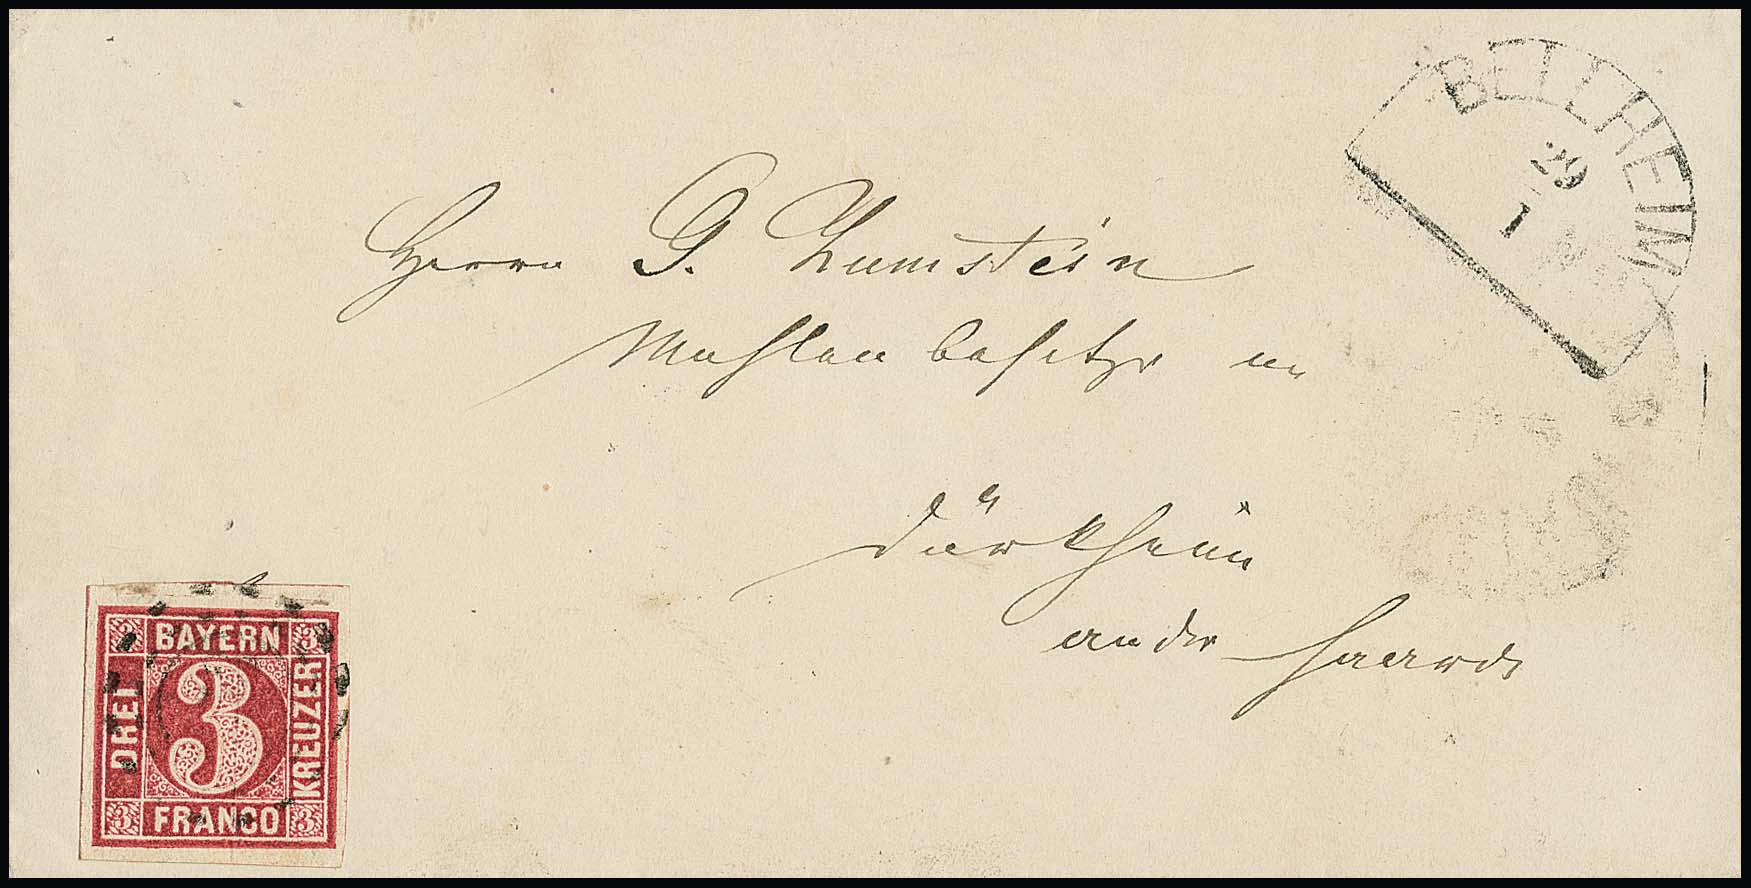 BELLHEIM
29
1
Herrn G. Zumstein
Muhlenbesitzer in
Dürkheim
an der Haardt
BAYERN
DREI
3
KREUZER
FRANCO
3
3
3
3